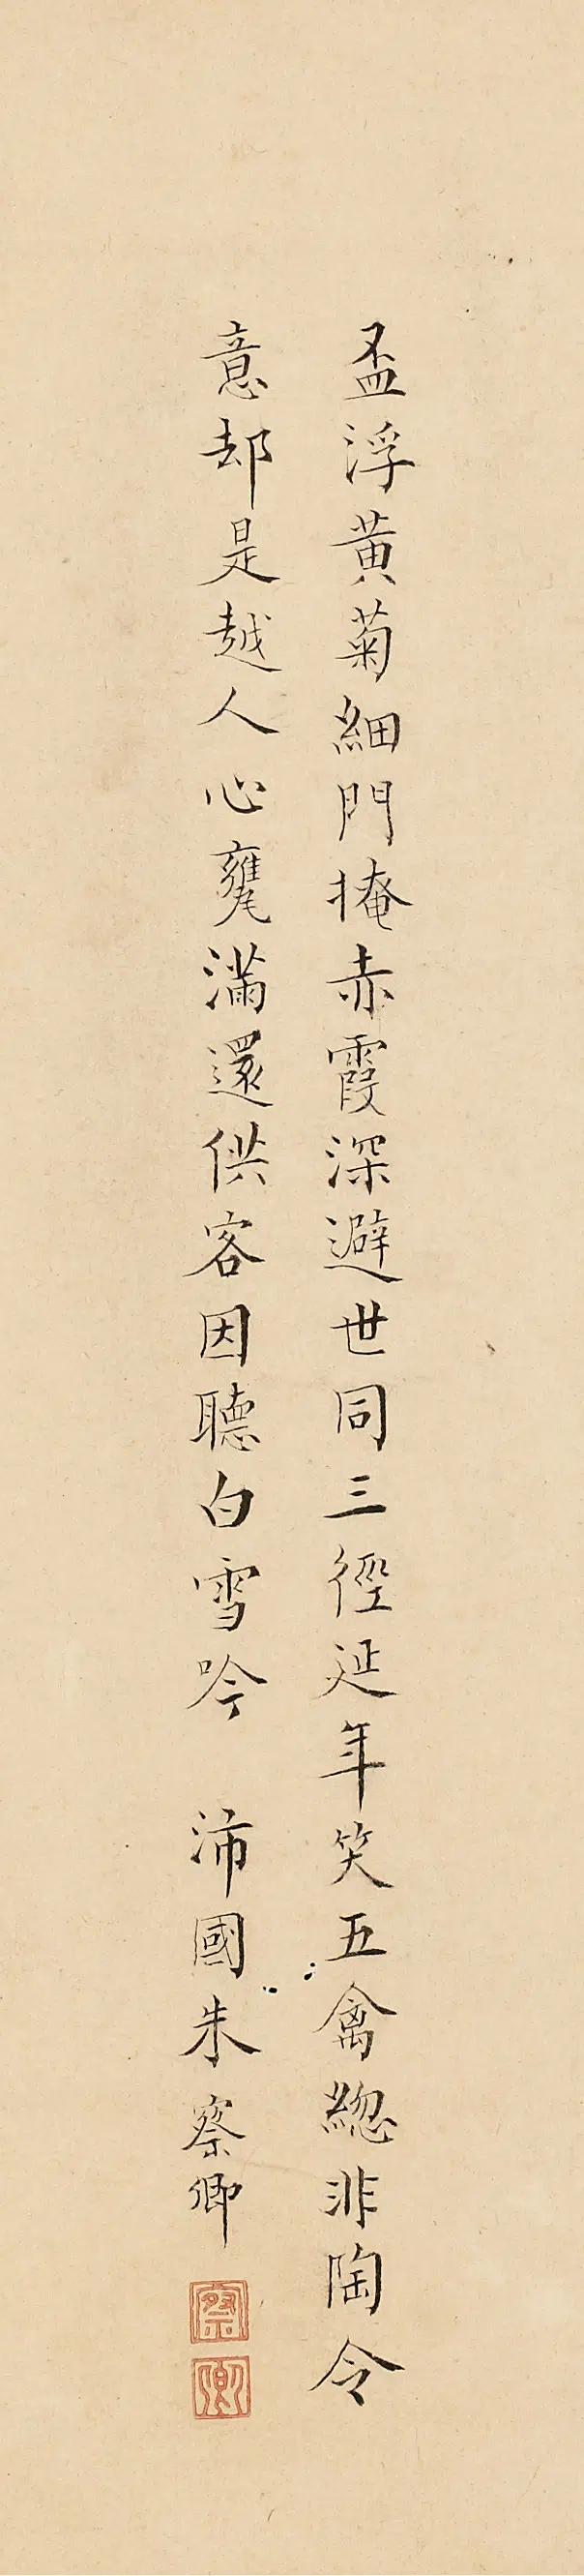 盃浮黄菊細門掩赤霞深避世同三徑延年笑五禽緫非陶令
意却是越人心甕滿還供客因聽白雪吟 沛國朱察卿
察
卿